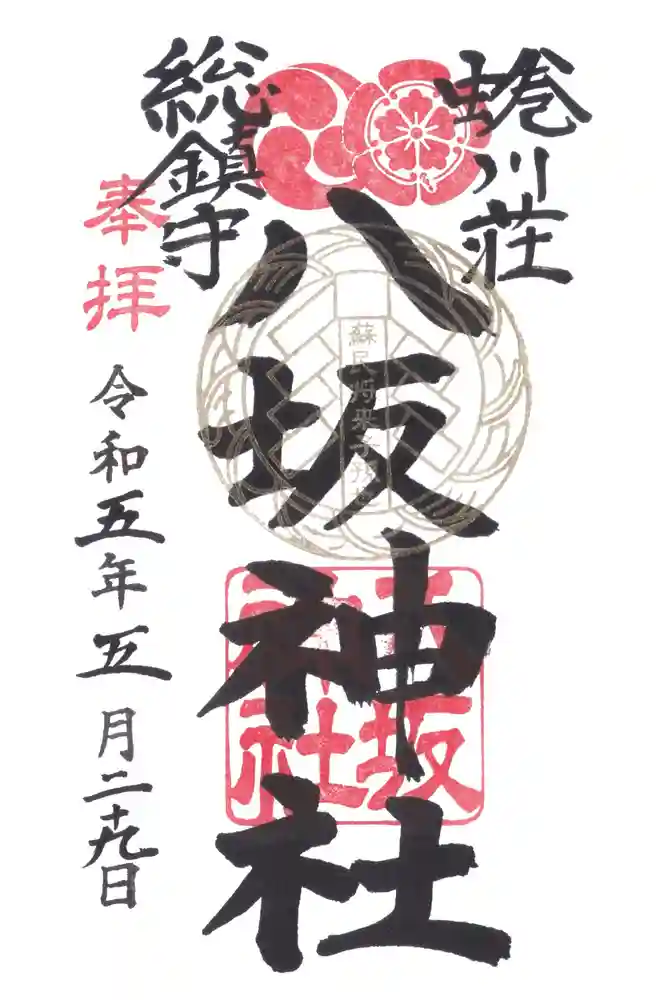 蜷川荘
総鎮守
八坂神社
奉拝
令和五年五月二十九日
蘇民将来子孫也
八坂
神社